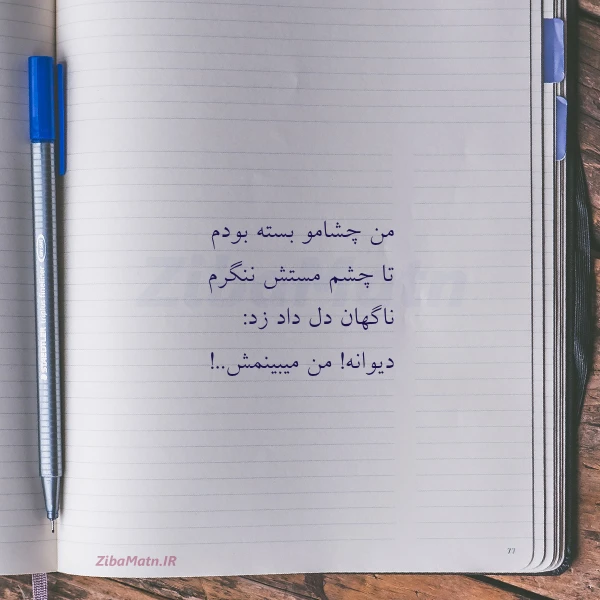 من چشامو بسته بودم
تا چشم مستش ننگرم
ناگهان دل داد زد:
دیوانه! من میبینمش..!
ZibaMatn
77
ZibaMatn.IR